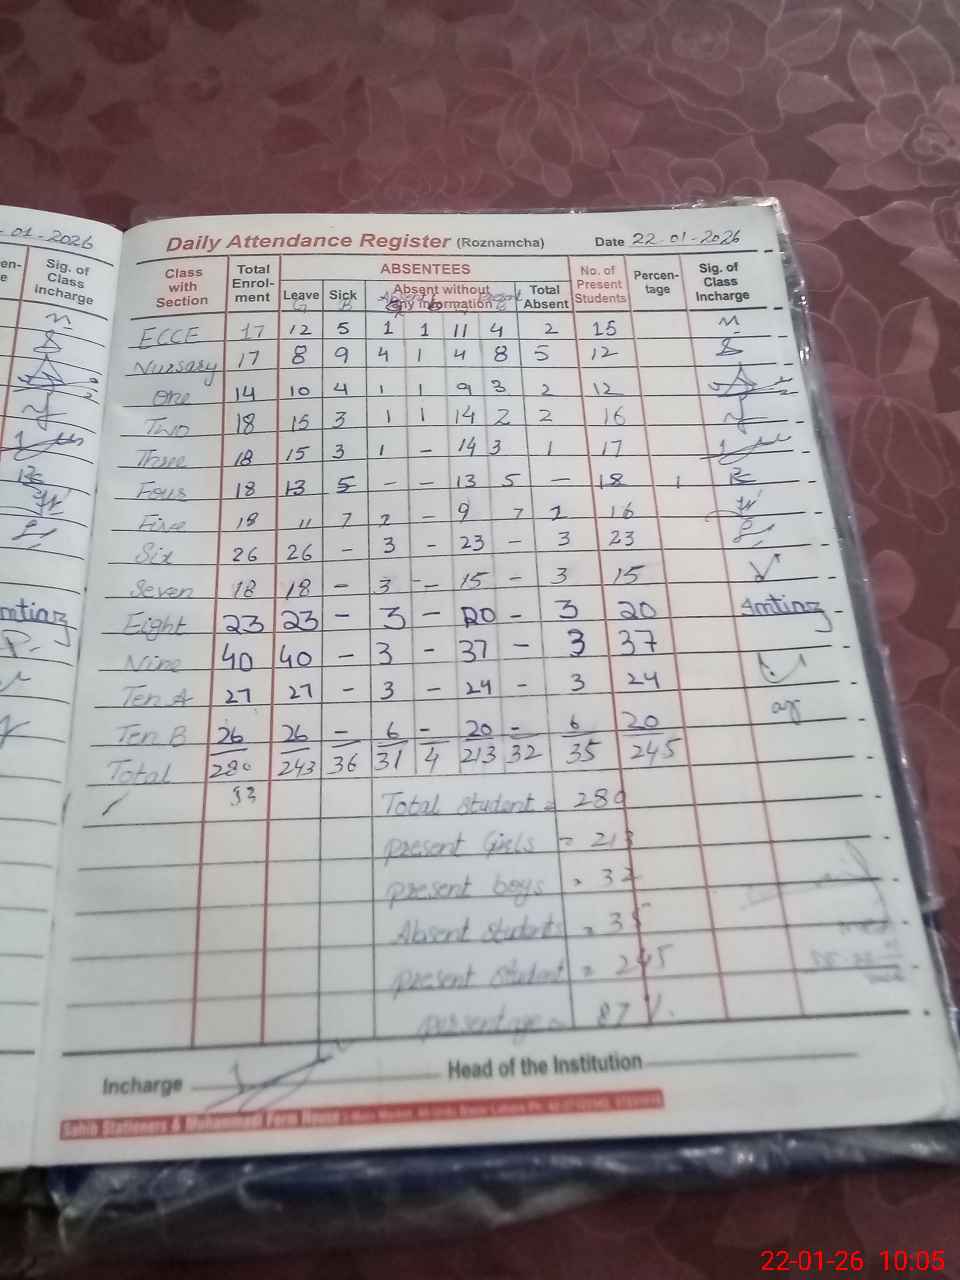 - 01 - 2026
Sig. of Class Incharge
Daily Attendance Register (Roznamcha) Date 22-01-2026
Class with Section Total Enrol-ment ABSENTEES No. of Present Students Percen-tage Sig. of Class Incharge
Leave Sick Absent without any information Total Absent
G B
ECCE 17 12 5 1 1 11 4 2 15
Nursary 17 8 9 4 1 4 8 5 12
One 14 10 4 1 1 9 3 2 12
Two 18 15 3 1 1 14 2 2 16
Three 18 15 3 1 - 14 3 1 17
Four 18 13 5 - - 13 5 - 18
Five 18 11 7 2 - 9 7 2 16
Six 26 26 - 3 - 23 - 3 23
Seven 18 18 - 3 - 15 - 3 15
Eight 23 23 - 3 - 20 - 3 20 Amtiaz
Nine 40 40 - 3 - 37 - 3 37
Ten A 27 27 - 3 - 24 - 3 24
Ten B 26 26 - 6 - 20 - 6 20
Total 280 243 36 31 4 213 32 35 245
Total Student = 280
present Girls = 213
present boys = 32
Absent Students = 35
present Student = 245
persentage = 87 %.
Incharge Head of the Institution
Sahib Stationers & Muhammadi Form House
22-01-26 10:05